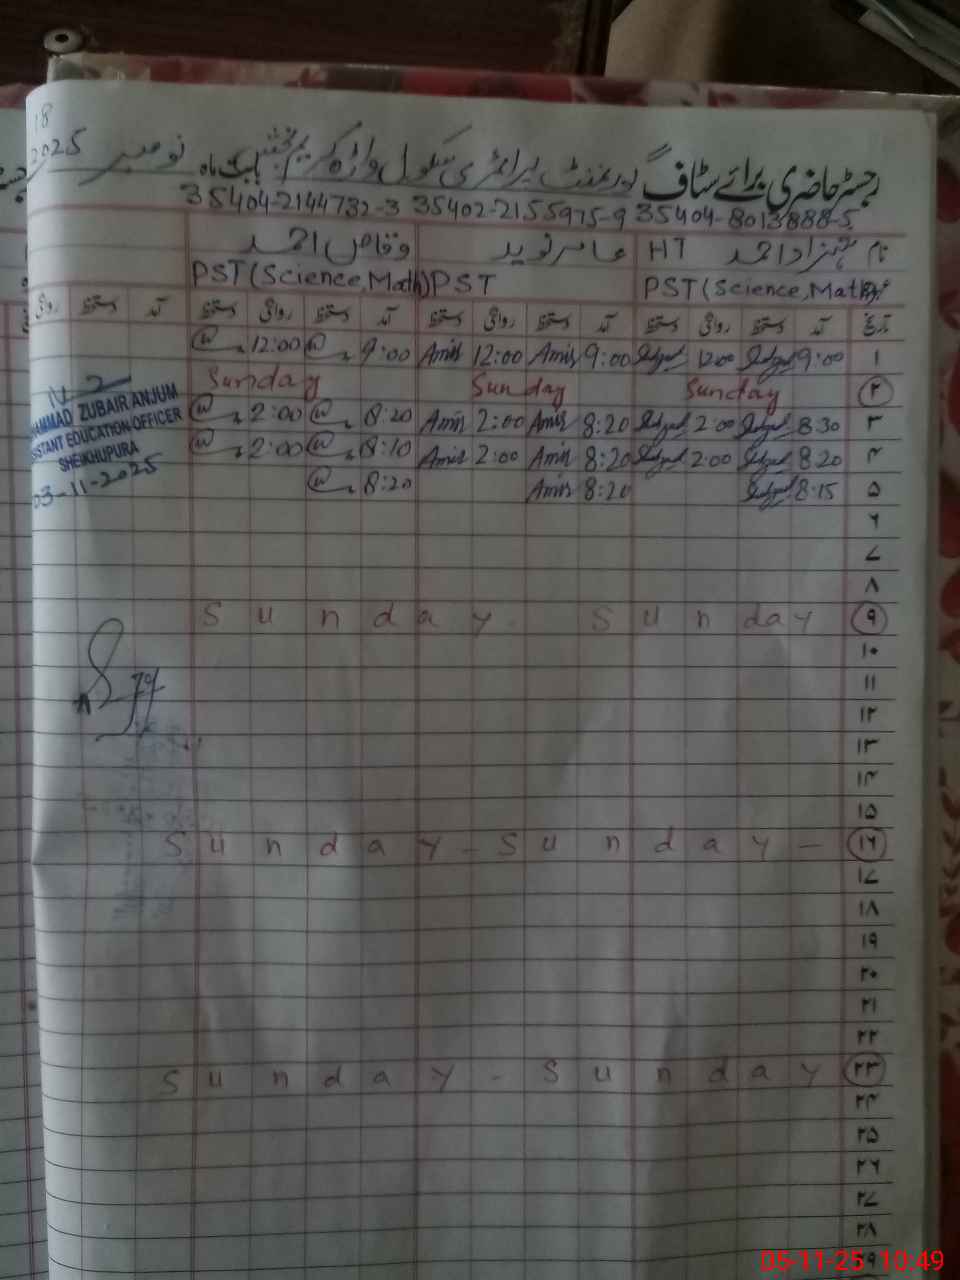 18
رجسٹر حاضری برائے سٹاف گورنمنٹ پرائمری سکول واڑہ کریم بخش بابت ماہ نومبر 2025
35404-2144732-3 35402-2155975-9 35404-8013888-5
نام شہزاد احمد HT عامر نوید وقاص احمد
PST (Science, Math) PST PST (Science, Math)
تاریخ آمد دستخط روانگی دستخط آمد دستخط روانگی دستخط آمد دستخط روانگی دستخط آمد دستخط روانگی
۱ 9:00 12:00 9:00 Amir 12:00 Amir 9:00 12:00
۲ Sunday Sunday Sunday
۳ 8:30 2:00 8:20 Amir 2:00 Amir 8:20 2:00
۴ 8:20 2:00 8:20 Amir 2:00 Amir 8:10 2:00
۵ 8:15 8:20 Amir 8:20
MMAD ZUBAIR ANJUM
ISTANT EDUCATION OFFICER
SHEIKHUPURA
03-11-2025
۶
۷
۸
۹ Sunday. Sunday
۱۰
۱۱
۱۲
۱۳
۱۴
۱۵
۱۶ Sunday - Sunday -
۱۷
۱۸
۱۹
۲۰
۲۱
۲۲
۲۳ Sunday - Sunday
۲۴
۲۵
۲۶
۲۷
۲۸
05-11-25 10:49